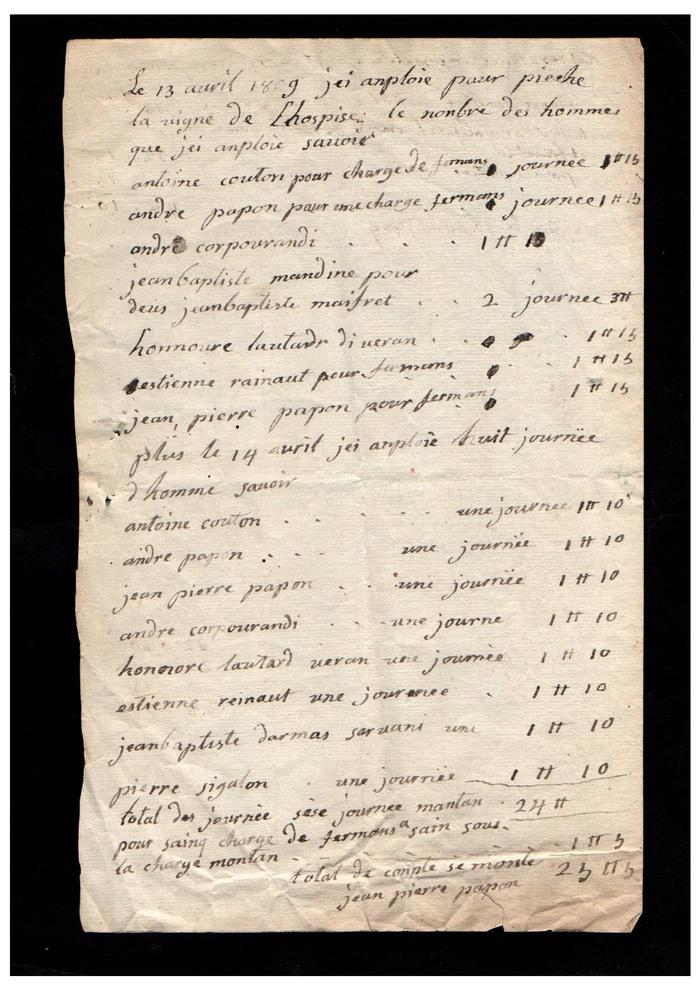 Le 13 avril 1809 jei anploie paur pieche
la vigne de Lhospise: le nonbre des hommes
que jei anploie savoir
antoine couton pour charge de fermans journee 1 ₶ 15
andre papon pour une charge fermans journee 1 ₶ 15
andre corpourandi . . . 1 ₶ 10
jean baptiste mandine pour
deus jeanbaptiste maifret . . 2 journee 3₶
honnoure lautard di veran . 1 ₶ 15
estienne rainaut pour fermans . 1 ₶ 15
jean pierre papon pour fermans 1 ₶ 15
plus le 14 avril jei anploie huit journëe
d'homme savoir
antoine couton . . . . une journee 1₶ 10
andre papon . . . une journëe 1 ₶ 10
jean pierre papon . . une journëe 1 ₶ 10
andre corpourandi . . une journe 1 ₶ 10
honnore lautard veran une journëe 1 ₶ 10
estienne reinaut une journee . 1 ₶ 10
jean baptiste darmas servani une 1 ₶ 10
pierre sigalon . une journëe 1 ₶ 10
total des journëe sese journee mantan . 24 ₶
pour sainq charge de fermans a sain sous.
la charge montan . 1 ₶ 5
total de conple se monte 25 ₶ 5
jean pierre papon